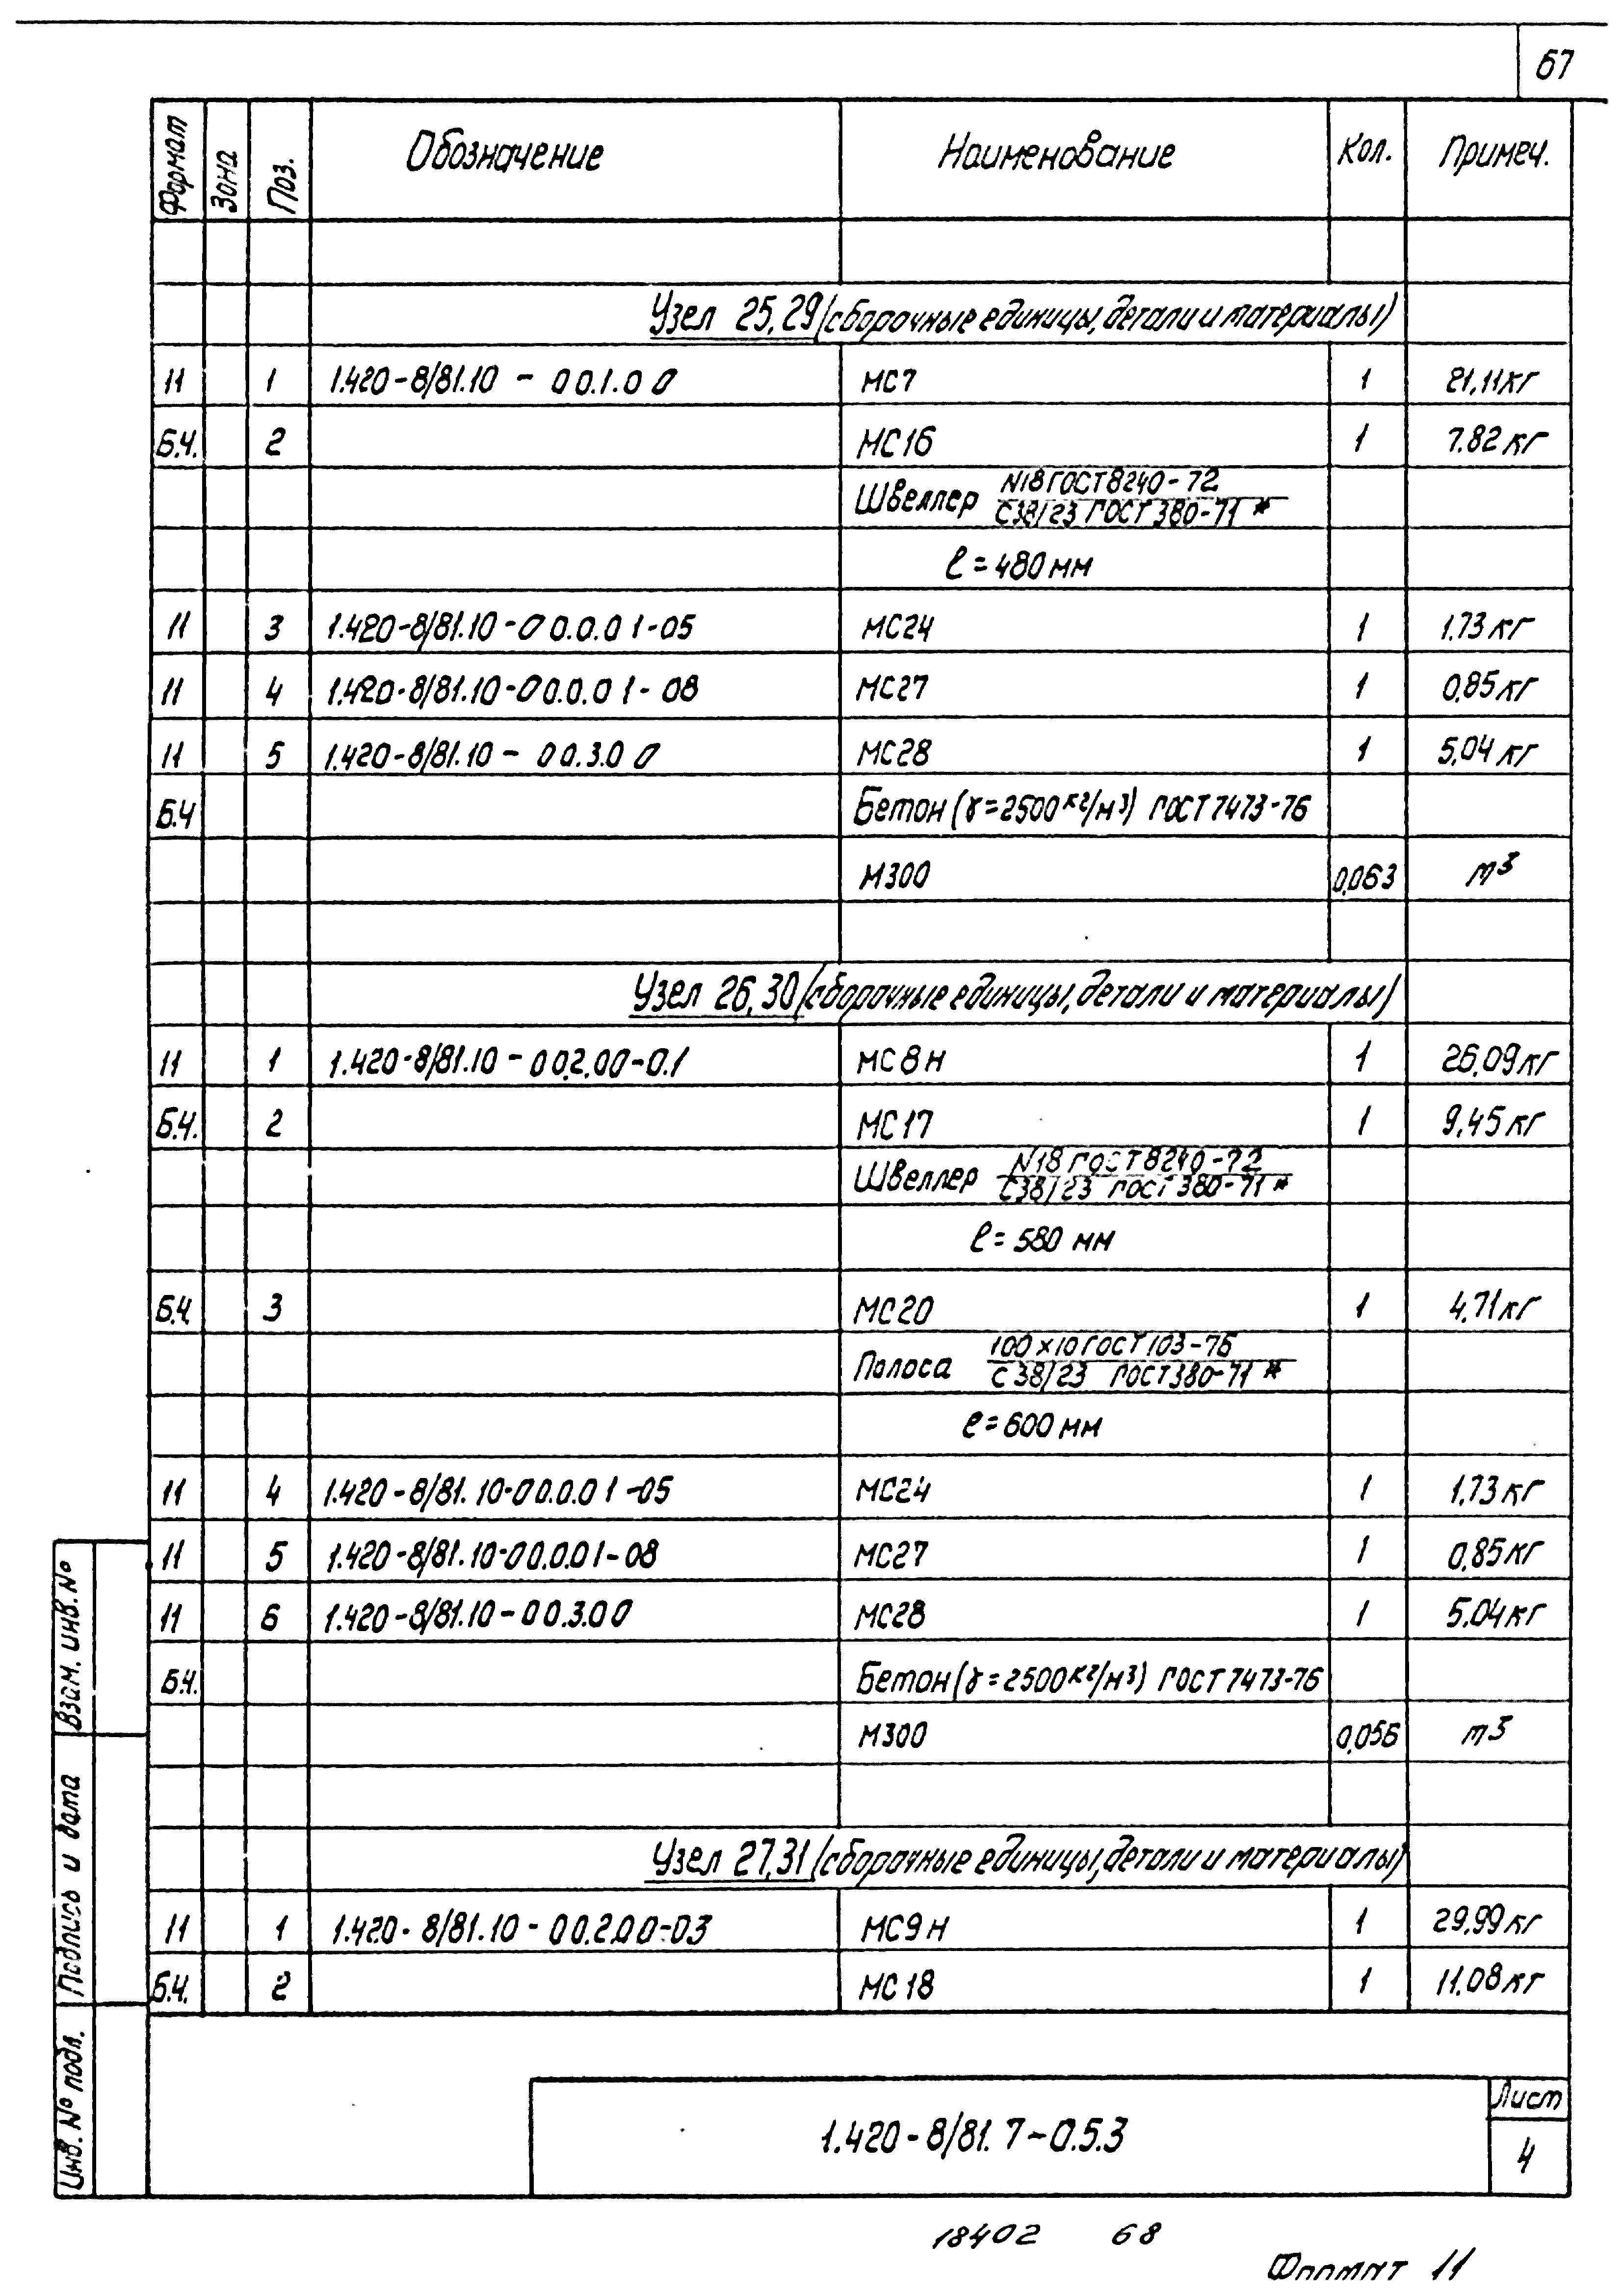 67
Формат Зона Поз. Обозначение Наименование Кол. Примеч.
Узел 25,29 (сборочные единицы, детали и материалы)
11 1 1.420-8/81.10 - 00.1.00 МС7 1 21,11кг
Б.Ч. 2 МС16 1 7.82кг
Швеллер N18 ГОСТ 8240-72
С38/23 ГОСТ 380-71*
ℓ=480мм
11 3 1.420-8/81.10-00.0.01-05 МС24 1 1.73кг
11 4 1.420-8/81.10-00.0.01-08 МС27 1 0,85кг
11 5 1.420-8/81.10 - 00.3.00 МС28 1 5,04кг
Б.Ч Бетон (γ=2500кг/м³) ГОСТ 7473-76
М300 0,063 m³
Узел 26,30 (сборочные единицы, детали и материалы)
11 1 1.420-8/81.10 - 00.2.00-0.1 МС8н 1 26,09кг
Б.Ч. 2 МС17 1 9,45кг
Швеллер N18 ГОСТ 8240-72
С38/23 ГОСТ 380-71*
ℓ=580 мм
Б.Ч. 3 МС20 1 4,71кг
Полоса 100×10 ГОСТ 103-76
С38/23 ГОСТ 380-71*
ℓ=600мм
11 4 1.420-8/81.10-00.0.01-05 МС24 1 1,73кг
11 5 1.420-8/81.10-00.0.01-08 МС27 1 0,85кг
11 6 1.420-8/81.10-00.3.00 МС28 1 5.04кг
Б.Ч. Бетон (γ=2500кг/м³) ГОСТ 7473-76
М300 0,056 m³
Узел 27,31 (сборочные единицы, детали и материалы)
11 1 1.420-8/81.10 - 00.2.00-03 МС9н 1 29,99кг
Б.Ч. 2 МС18 1 11.08кг
Взам. инв. №
Подпись и дата
Инв. № подл.
1.420-8/81.7-0.5.3
Лист
4
18402 68
Формат 11